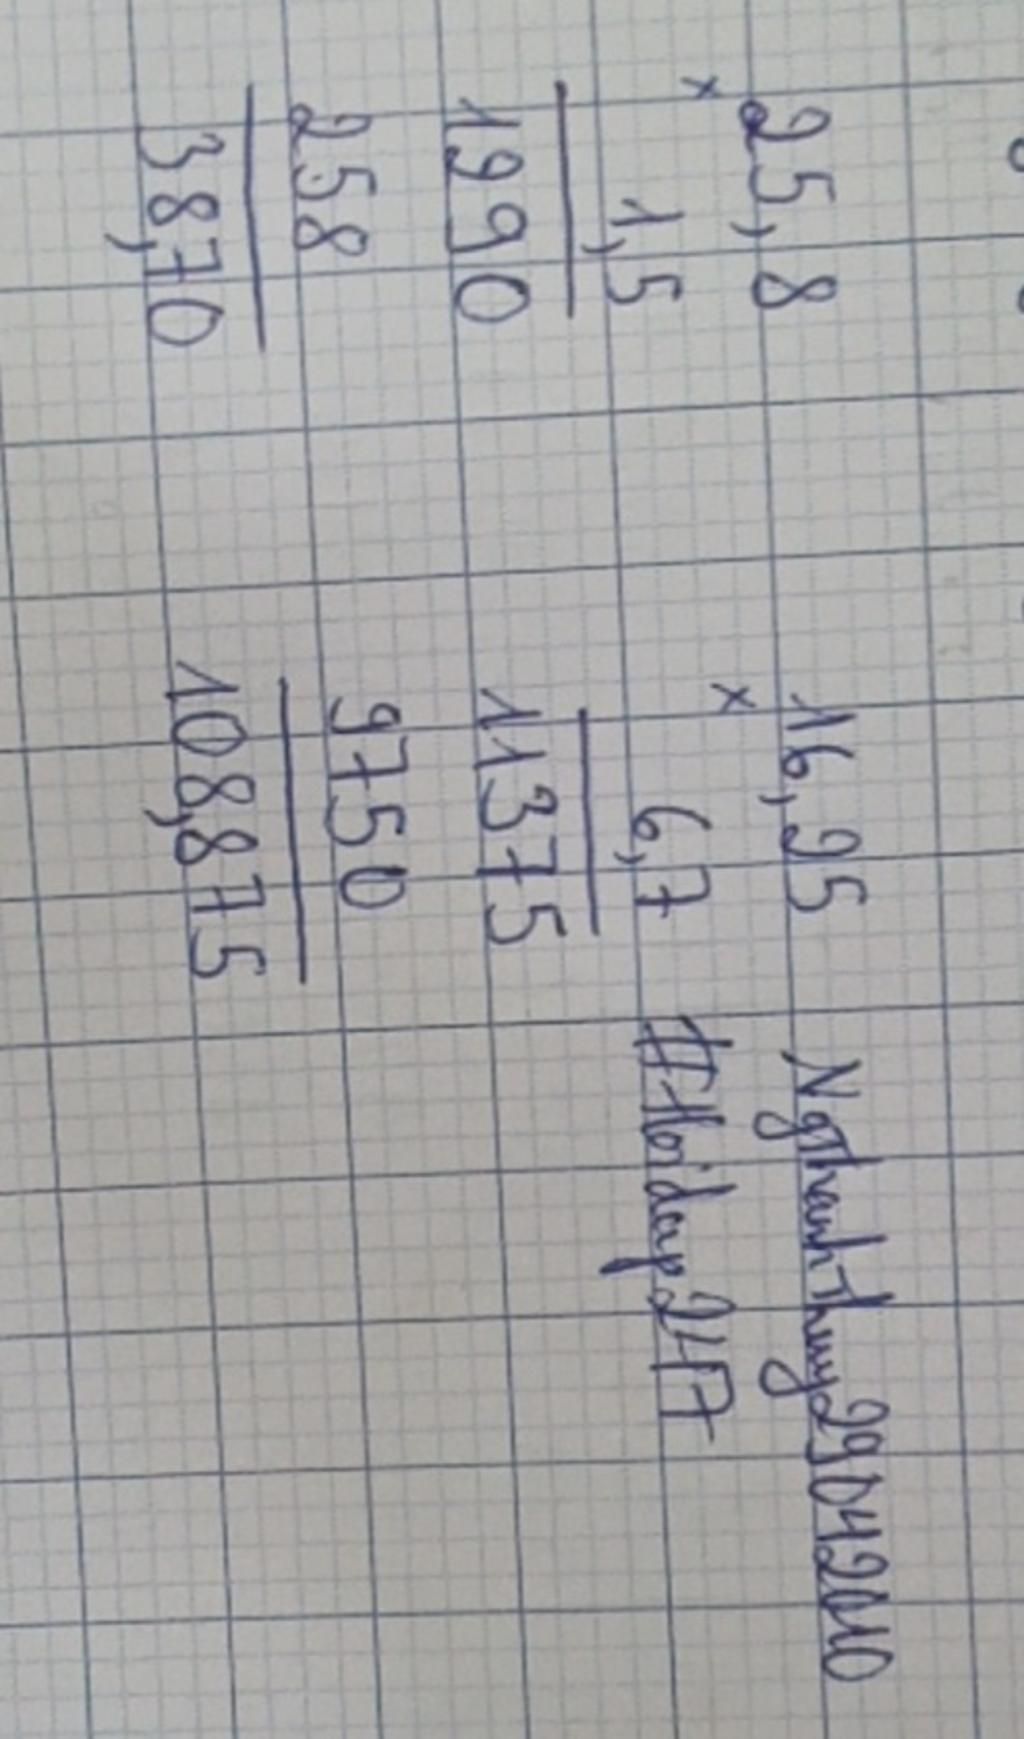 25,8
×
1,5
1290
258
38,70
16,25
×
6,7
11375
9750
108,875
NgThanhThuy29042010
#Hoidap247